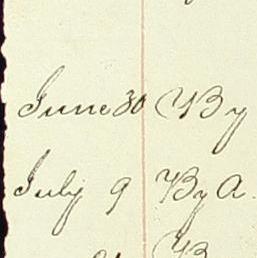 June 30 By
July 9 By A.